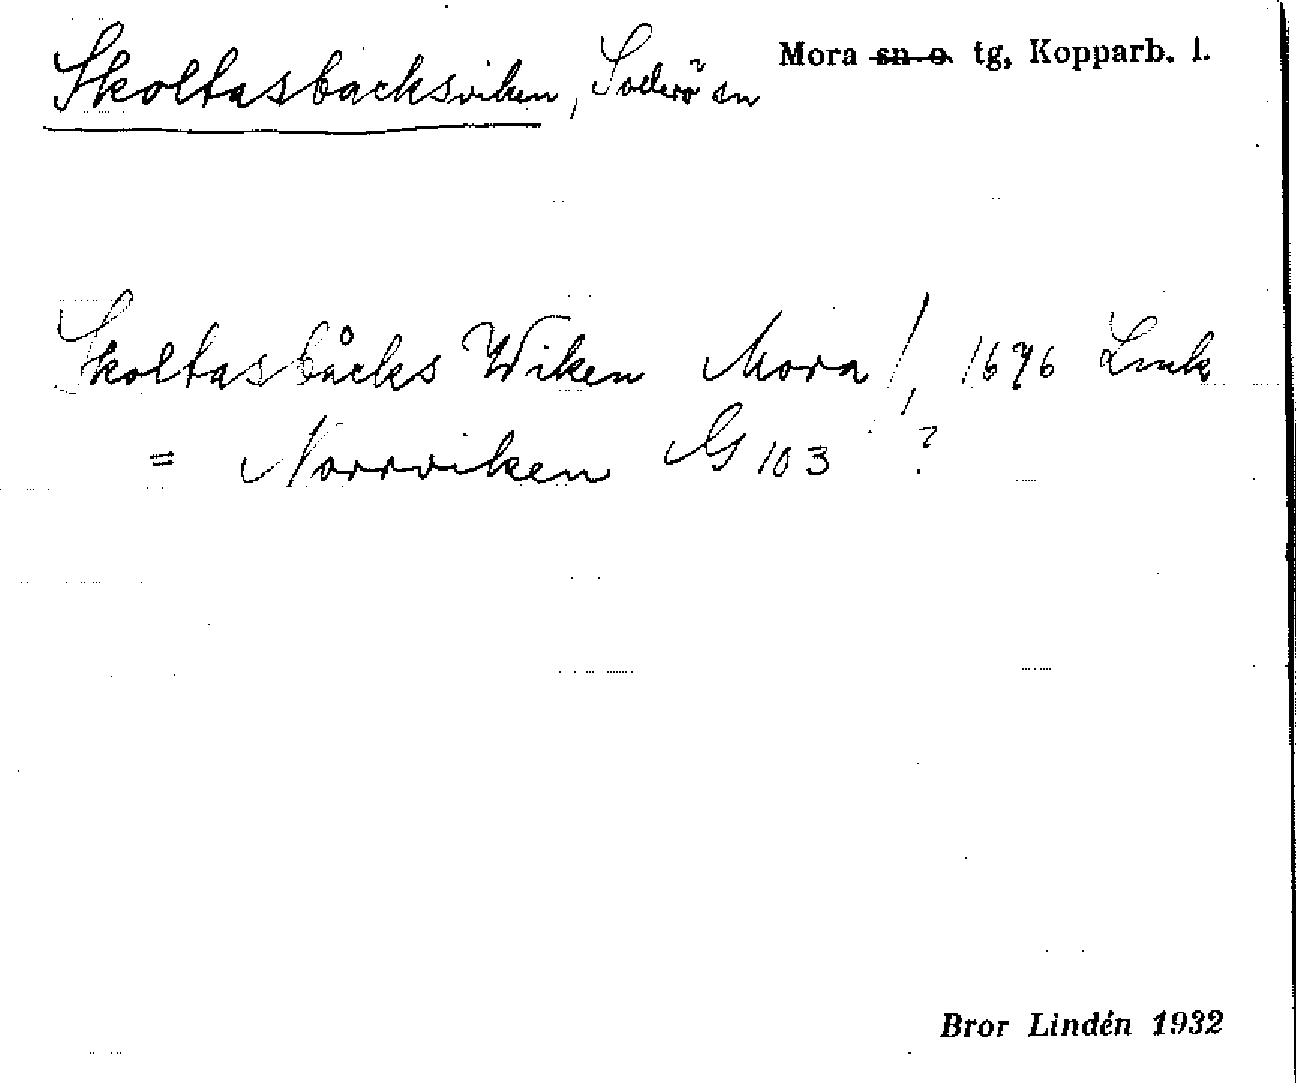 Skoltasbacksviken, Sollerö sn Mora sn o. tg, Kopparb. l.
Skoltasbåcks Wiken Mora /, 1696 Lmk
= Norrviken G 103 ?
Bror Lindén 1932